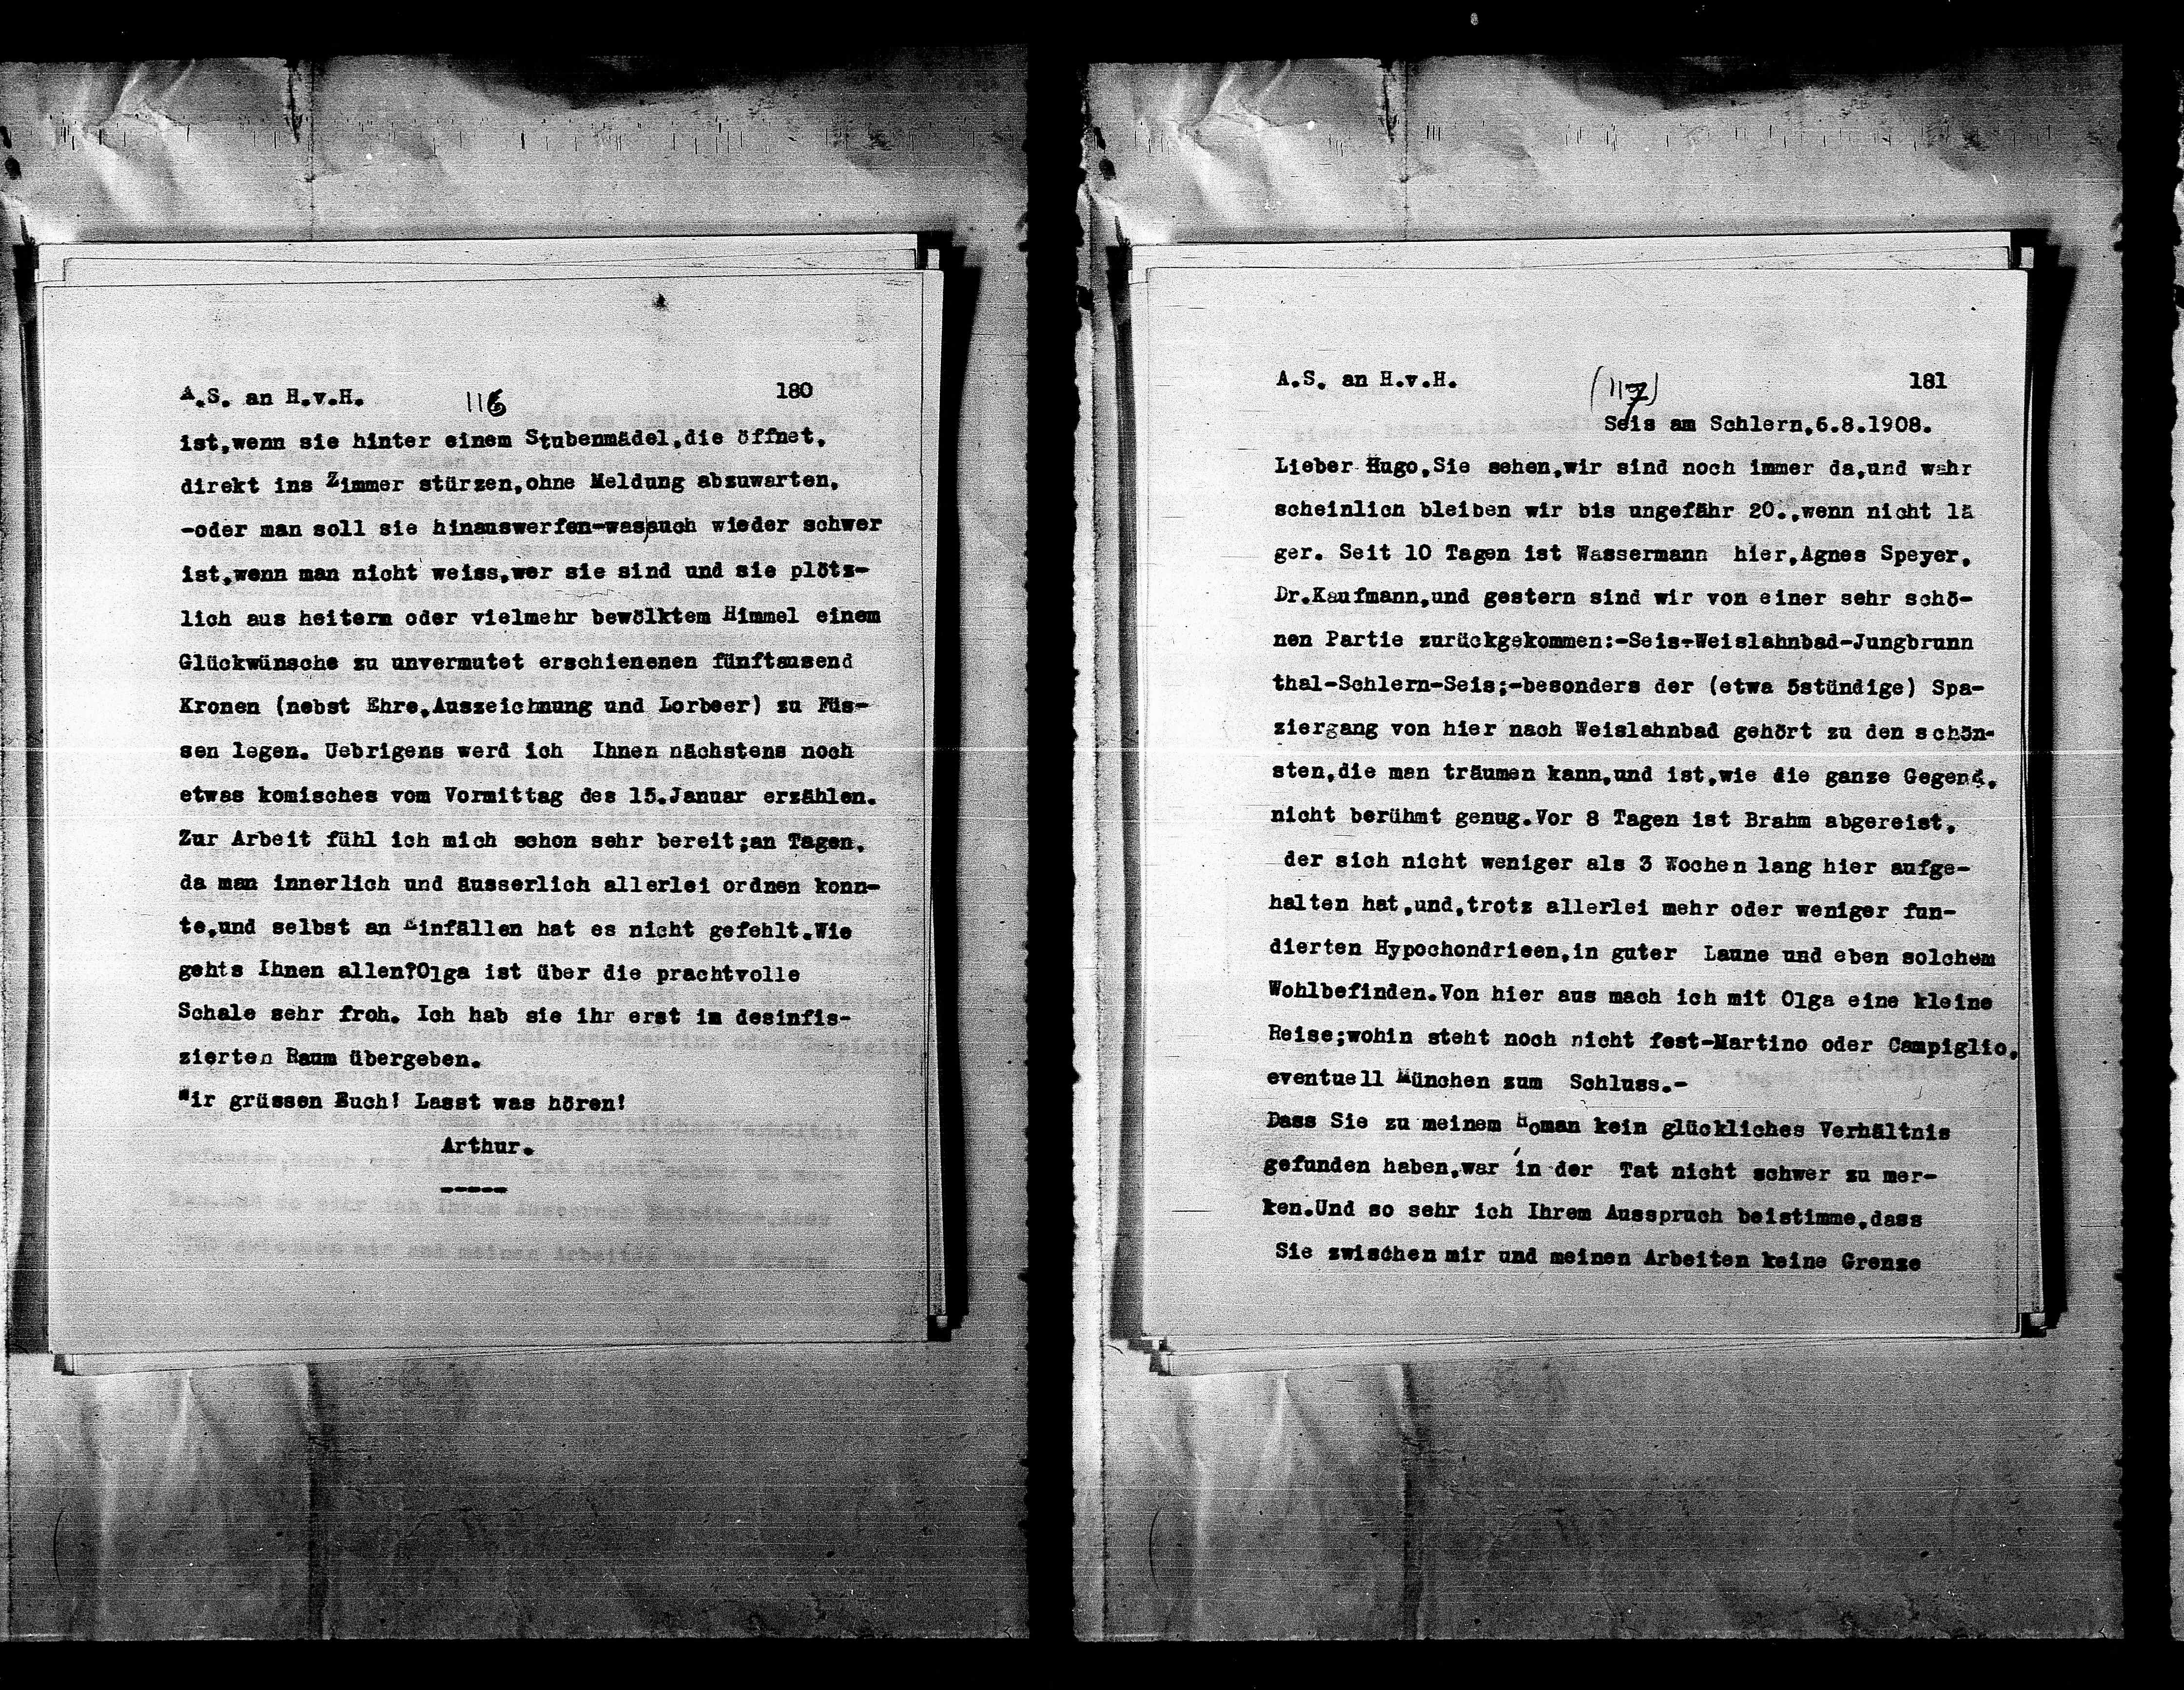 A.S. an H.v.H. 116 180
ist,wenn sie hinter einem Stubenmädel,die öffnet,
direkt ins Zimmer stürzen,ohne Meldung abzuwarten,
-oder man soll sie hinauswerfen-was auch wieder schwer
ist,wenn man nicht weiss,wer sie sind und sie plötz-
lich aus heiterm oder vielmehr bewölktem Himmel einem
Glückwünsche zu unvermutet erschienenen fünftausend
Kronen (nebst Ehre,Auszeichnung und Lorbeer) zu Füs-
sen legen. Uebrigens werd ich Ihnen nächstens noch
etwas komisches vom Vormittag des 15.Januar erzählen.
Zur Arbeit fühl ich mich schon sehr bereit;an Tagen,
da man innerlich und äusserlich allerlei ordnen konn-
te,und selbst an Einfällen hat es nicht gefehlt.Wie
gehts Ihnen allen?Olga ist über die prachtvolle
Schale sehr froh. Ich hab sie ihr erst im desinfis-
zierten Raum übergeben.
Wir grüssen Euch! Lasst was hören!
Arthur.
-----
A.S. an H.v.H. (117) 181
Seis am Schlern,6.8.1908.
Lieber Hugo,Sie sehen,wir sind noch immer da,und wahr
scheinlich bleiben wir bis ungefähr 20.,wenn nicht lä
ger. Seit 10 Tagen ist Wassermann hier,Agnes Speyer,
Dr.Kaufmann,und gestern sind wir von einer sehr schö-
nen Partie zurückgekommen:-Seis-Weislahnbad-Jungbrunn
thal-Schlern-Seis;-besonders der (etwa 5stündige) Spa-
ziergang von hier nach Weislahnbad gehört zu den schön-
sten,die man träumen kann,und ist,wie die ganze Gegend,
nicht berühmt genug.Vor 8 Tagen ist Brahm abgereist,
der sich nicht weniger als 3 Wochen lang hier aufge-
halten hat,und,trotz allerlei mehr oder weniger fun-
dierten Hypochondrieen,in guter Laune und eben solchem
Wohlbefinden.Von hier aus mach ich mit Olga eine kleine
Reise;wohin steht noch nicht fest-Martino oder Campiglio,
eventuell München zum Schluss.-
Dass Sie zu meinem Roman kein glückliches Verhältnis
gefunden haben,war in der Tat nicht schwer zu mer-
ken.Und so sehr ich Ihrem Ausspruch beistimme,dass
Sie zwischen mir und meinen Arbeiten keine Grenze